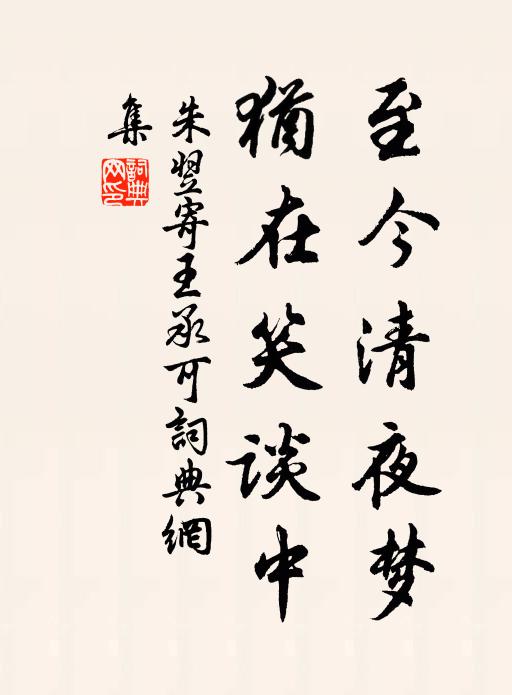 至今清夜梦
犹在笑谈中
朱翌寄王承可詞典網
集
詞典
网印